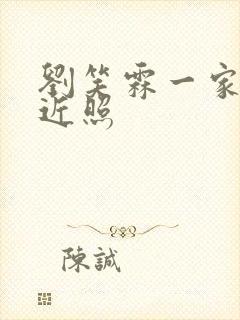 劉笑霖一家
近照
陳誠